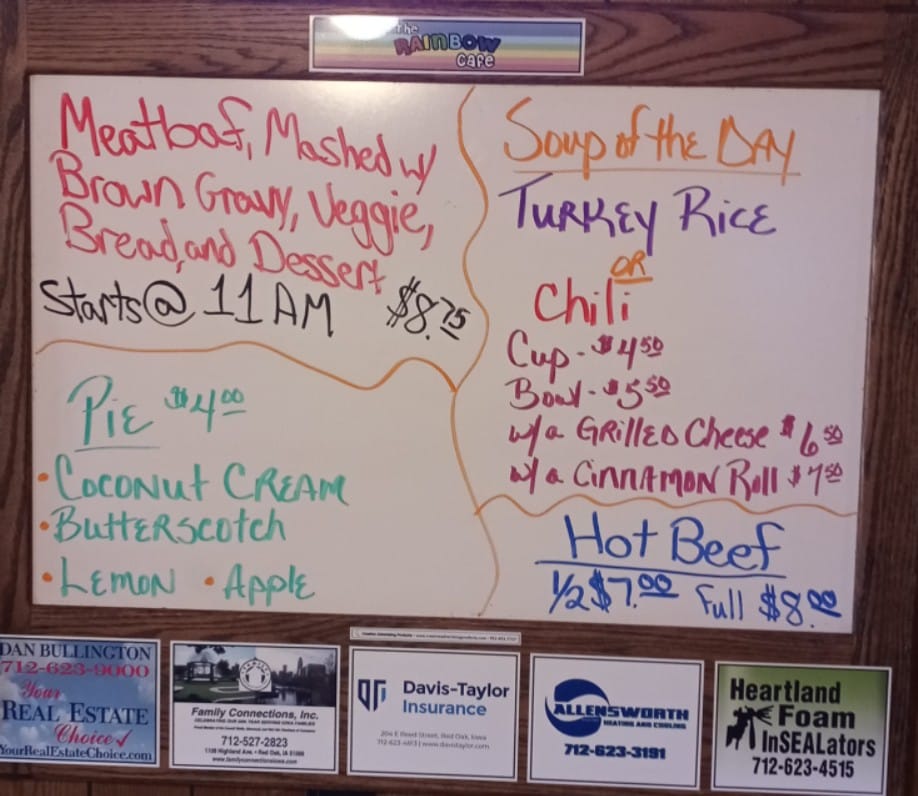 The
RAINBOW
Cafe
Meatloaf, Mashed w/
Brown Gravy, Veggie,
Bread, and Dessert
Starts @ 11 AM $8.75
Pie $4.00
• Coconut Cream
• Butterscotch
• Lemon • Apple
Soup of the Day
Turkey Rice
or
Chili
Cup - $4.50
Bowl - $5.50
w/a Grilled Cheese $6.50
w/a Cinnamon Roll $7.50
Hot Beef
1/2 $7.00 Full $8.00
DAN BULLINGTON
712-623-9000
Your
REAL ESTATE
Choice✓
YourRealEstateChoice.com
Family Connections, Inc.
712-527-2823
1109 Highland Ave. • Red Oak, IA 51566
www.familyconnectionsiowa.com
Davis-Taylor
Insurance
204 E Reed Street, Red Oak, Iowa
712-623-4813 | www.davistaylor.com
ALLENSWORTH
HEATING AND COOLING
712-623-3191
Heartland
Foam
InSEALators
712-623-4515